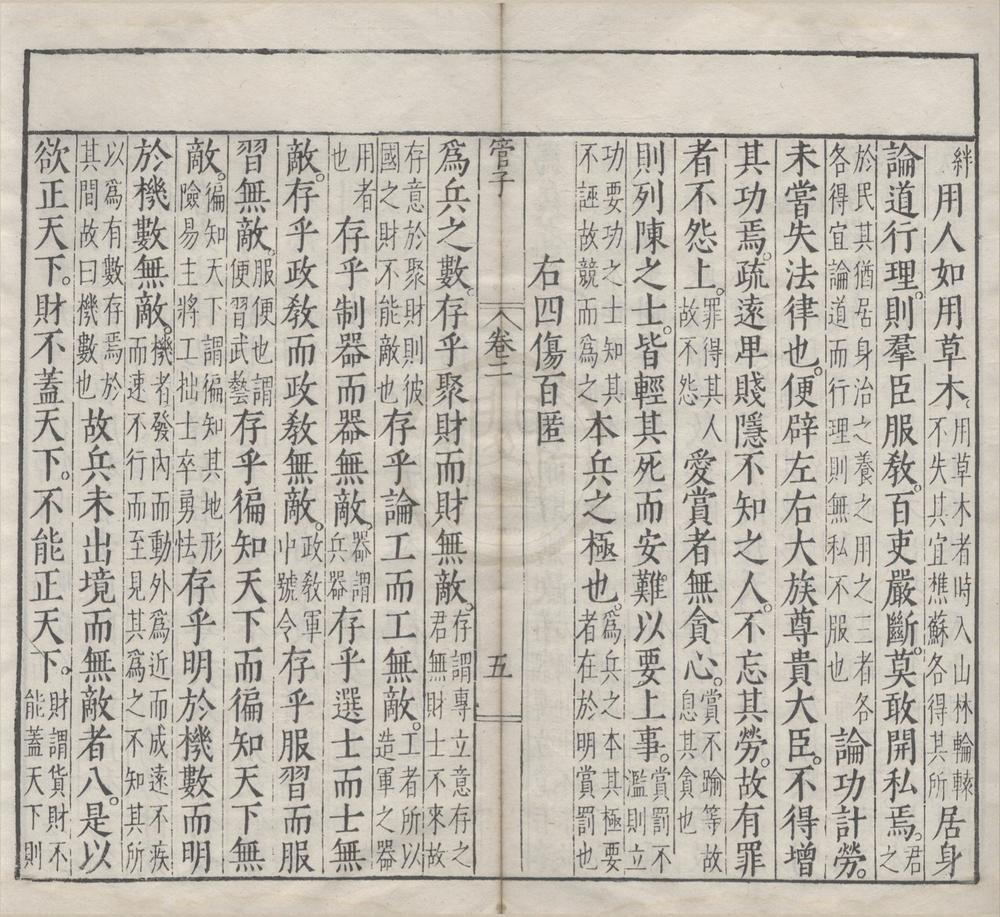 絆用人如用草木。用草木者時入山林輪轅不失其宜樵蘇各得其所居身
論道行理。則羣臣服教。百吏嚴斷。莫敢開私焉。君之
於民其猶居身治之養之用之三者各各得宜論道而行理則無私不服也論功計勞。
未嘗失法律也。便辟左右大族尊貴大臣。不得增
其功焉。疏遠卑賤隱不知之人。不忘其勞。故有罪
者不怨上。罪得其人故不怨愛賞者無貪心。賞不踰等故息其貪也
則列陳之士。皆輕其死而安難。以要上事。賞罰不濫則立
功要功之士知其不誣故競而爲之本兵之極也。爲兵之本其極要者在於明賞罰也
右四傷百匿
管子
卷二
五
爲兵之數。存乎聚財而財無敵。存謂專立意存之君無財士不來故
存意於聚財則彼國之財不能敵也存乎論工而工無敵。工者所以造軍之器
用者也存乎制器而器無敵。器謂兵器存乎選士而士無
敵。存乎政教而政教無敵。政教軍中號令存乎服習而服
習無敵。服便也謂便習武藝存乎徧知天下而徧知天下無
敵。徧知天下謂徧知其地形險易主將工拙士卒勇怯存乎明於機數而明
於機數無敵。機者發內而動外爲近而成遠不疾而速不行而至見其爲之不知其所
以爲有數存焉於其間故曰機數也故兵未出境而無敵者八。是以
欲正天下。財不蓋天下。不能正天下。財謂貨財不能蓋天下則